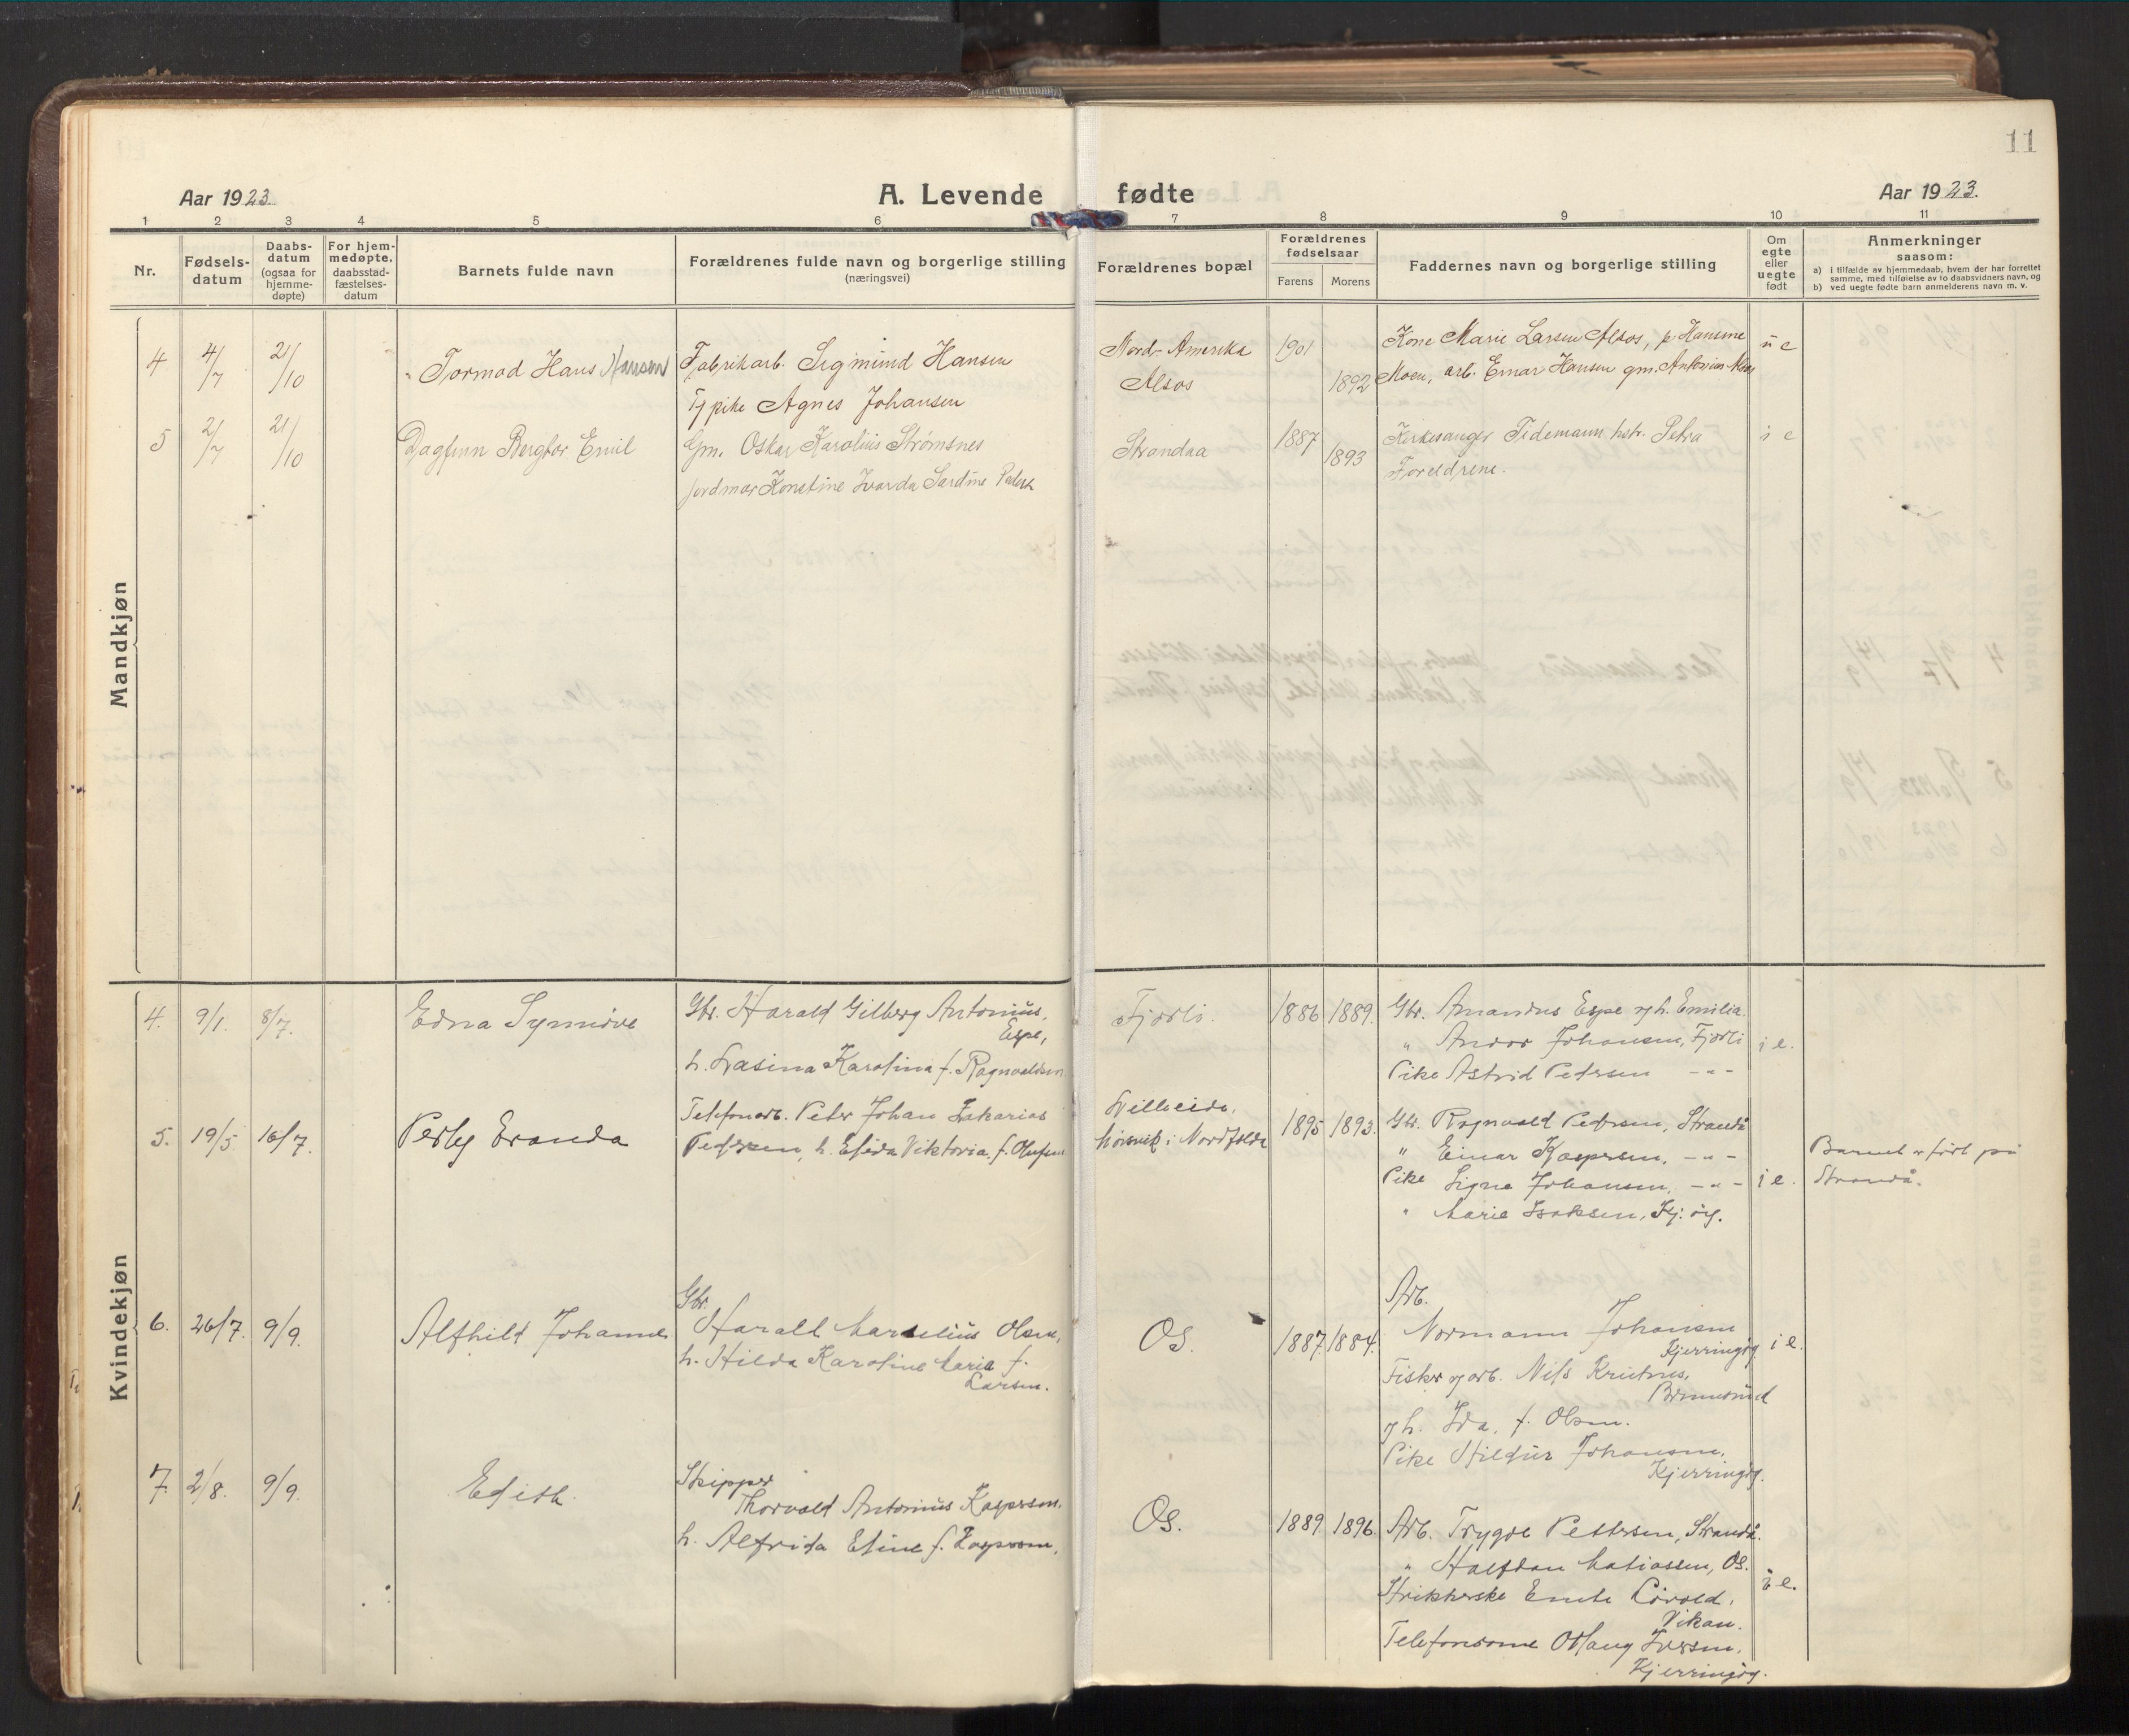 11
Aar 1923.
A. Levende fødte
Aar 1923.
1 2 3 4 5 6 7 8 9 10 11
Nr.
Fødsels-
datum
Daabs-
datum
(ogsaa for
hjemme-
døpte)
For hjem-
medøpte.
daabsstad-
fæstelses-
datum
Barnets fulde navn
Forældrenes fulde navn og borgerlige stilling
(næringsvei)
Forældrenes bopæl
Forældrenes
fødselsaar
Farens Morens
Faddernes navn og borgerlige stilling
Om
egte
eller
uegte
født
Anmerkninger
saasom:
a) i tilfælde av hjemmedaab, hvem der har forrettet
samme, med tilføielse av to daabsvidners navn, og
b) ved uegte fødte barn anmelderens navn m. v.
Mandkjøn
4 4/7 21/10 Tormod Hans Hansen
Fabrikarb. Sigmund Hansen
Tj pike Agnes Johansen
Nord-Amerika
Alsos
1901 1892
Kone Marie Larsen Alsos, p. Hansine
Moen, arb. Einar Hansen gm. Antonius Alsos
u e
5 2/7 21/10 Dagfinn Bergtor Emil
Gm. Oskar Karolius Strømsnes
jordmor Konstine Ivarda Sardine
Strandaa
1887 1893
Kirkesanger Tidemann hstr. Petra
Foreldrene.
i e
Kvindekjøn
4. 9/1. 8/7. Edna Synnøve
Gbr. Harald Gilberg Antonius,
Espe,
h. Lasina Karolina f. Ragnvaldsen
Fjorli.
1886 1889.
Gbr. Amandus Espe og h. Emilia.
" Andor Johansen, Fjorli
Pike Astrid Petersen -"-
i e.
5. 19/5 16/7. Perly Evanda
Telefonarb. Peter Johan Zakarias
Pedersen, h. Elida Viktoria, f. Olufsen
i Nordfolda
1895 1893.
Gbr. Ragnvald Pedersen, Strandå
" Einar Kaspersen, -"-
Pike Signe Johansen, -"-
" Marie Isaksen, Kj. øy.
i e.
Barnet er født på
Strandå.
6. 26/7. 9/9. Alfhild Johanne
Gbr.
Harald Marselius Olsen,
h. Hilda Karoline Maria f.
Larsen.
Os.
1887. 1884.
Arb.
Normann Johansen
Kjerringøy.
Fisker og arb. Nils
og h. Ida, f. Olsen.
Pike Hildur Johansen,
Kjerringøy.
i e.
7. 2/8. 9/9. Edith.
Skipper
Thorvald Antonius Kaspersen.
h. Alfrida Eline f. Kaspersen,
Os.
1889 1896.
Arb. Trygve Pettersen, Strandå.
" Halfdan Matiassen, Os.
Strikkerske
Vikan.
Iversen,
Kjerringøy.
i e.